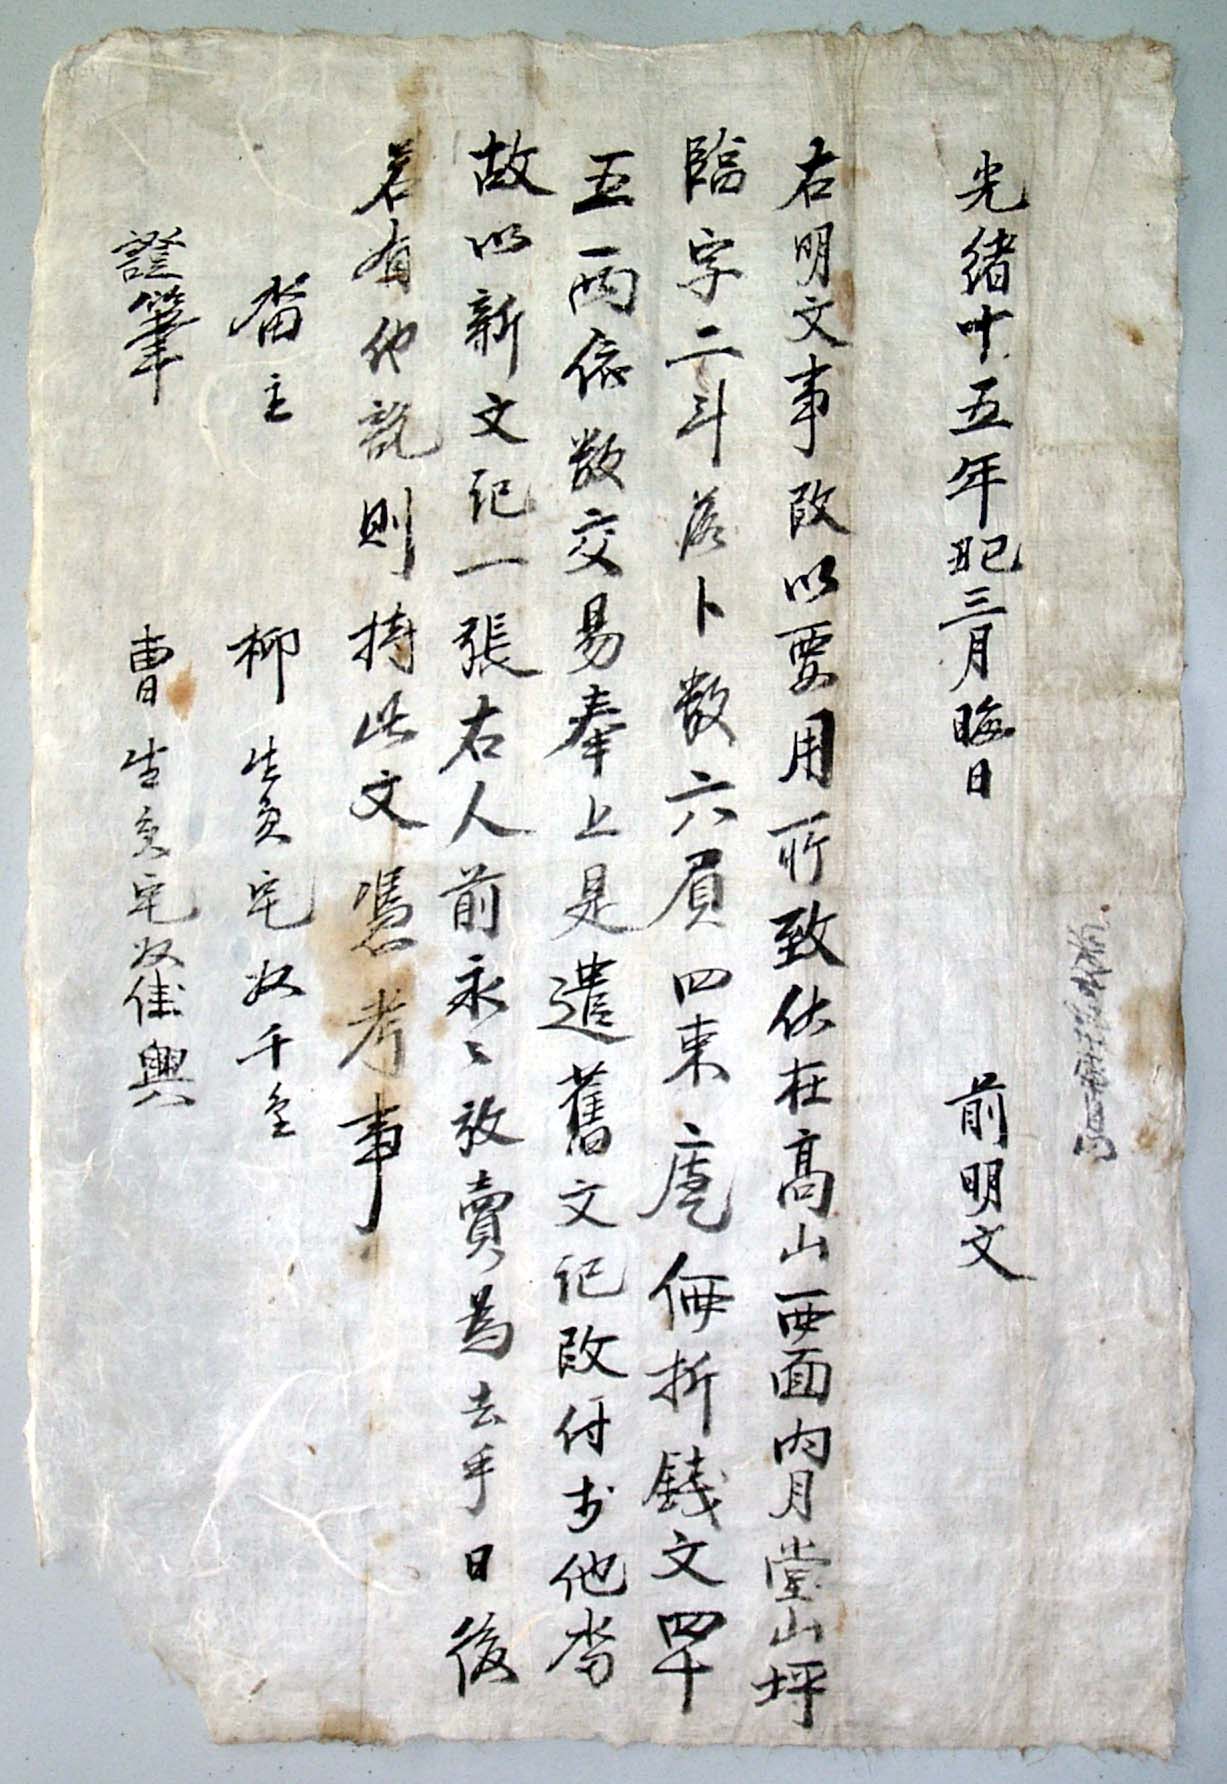 光緖十五年己丑三月晦日 前明文
右明文事段以要用所致伏在高山西面內月堂山坪
臨字二斗落卜數六負四束庫㐣折錢文四十
五兩依數交易奉上是遣舊文記段付於他畓
故以新文記一張右人前永〻放賣爲去乎日後
若有他說則持此文憑考事
畓主 柳生員宅奴千金
證筆 曺生員宅奴佳興